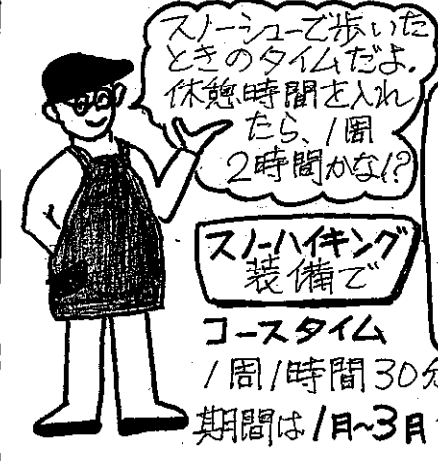 スノーシューで歩いた
ときのタイムだよ.
休憩時間を入れ
たら、1周
2時間かな!?
スノーハイキング
装備で
コースタイム
1周1時間30分
期間は1月~3月